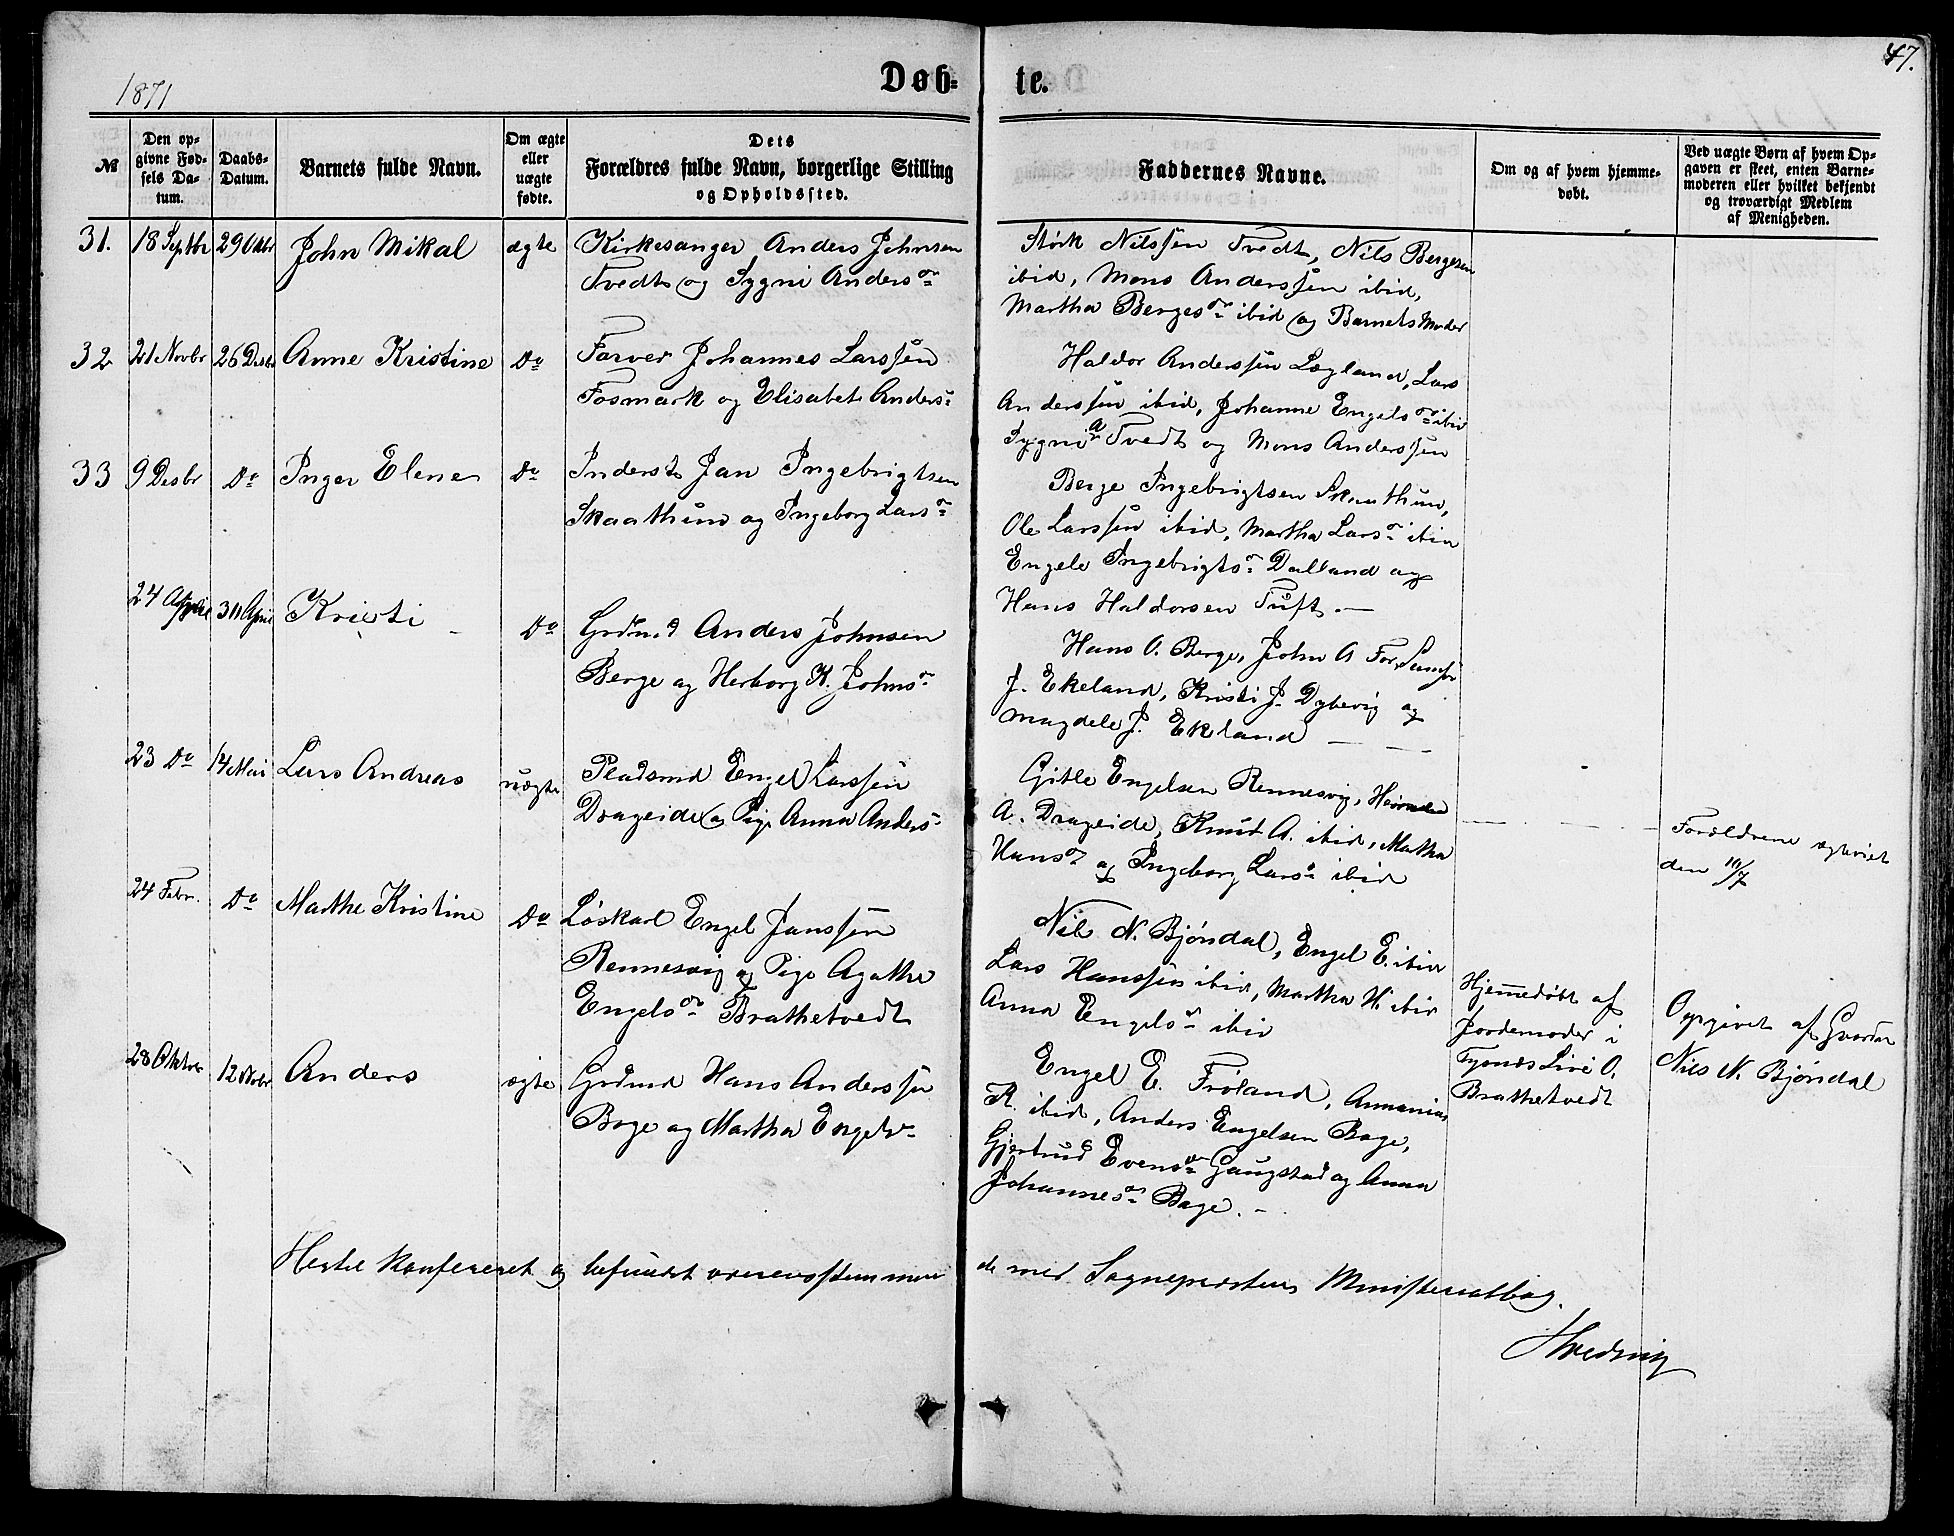 1871
Døb-
te.
47.
№
Den op-
givne Fød-
sels Da-
tum.
Daabs-
Datum.
Barnets fulde Navn.
Om ægte
eller
uægte
fødte.
Dets
Forældres fulde Navn, borgerlige Stilling
og Opholdssted.
Faddernes Navne.
Om og af hvem hjemme-
døbt.
Ved uægte Børn af hvem Op-
gaven er skeet, enten Barne-
moderen eller hvilket bekjendt
og troværdigt Medlem
af Menigheden.
31.
18 Septbr
29 Oktbr
John Mikal
ægte
Kirkesanger Anders Johnsen
Tvedt og Sygni Andersdr
Størk Nilssen Tvedt, Nils Bergesen
ibid, Mons Anderssen ibid,
Martha Bergesdr ibid og Barnets Moder
32
21 Novbr
26 Desbr
Anne Kristine
Do
Farver Johannes Larssen
Fosmark og Elisabet Anders
Haldor Anderssen Løgland, Lars
Anderssen ibid, Johanne Engelsdr ibid
Sygni A Tvedt og Mons Anderssen
33
9 Desbr
Do
Inger Elene
Do
Inderst Jan Ingebrigtsen
Skaathun og Ingeborg Larsdr
Berge Ingebrigtsen Skaathun,
Ole Larssen ibid, Martha Larsdr ibid
Engele Ingebrigtsdr Dalland og
Hans Haldorsen Tuft. —
24 April
30 April
Kristi
Do
Grdmd Anders Johnsen
Berge og Herborg K. Johnsdr
Hans O. Berge, John A
J. Ekeland, Kristi J. Dybevig og
Magdele J. Ekland
23 Do
14 Mai
Lars Andreas
uægte
Pladsmd Engel Larssen
Drageide og Pige Anna Anders
Gitle Engelsen Rennesvig,
A. Drageide, Knut A. ibid, Martha
Hansdr og Ingeborg Larsdr ibid
Forældrene ægteviet
den 10/7
24 Febr.
Do
Marthe Kristine
Do
Løskarl Engel Janssen
Rennesvig og Pige Agathe
Engelsdr Brathetvedt
Nils N. Bjøndal, Engel E. ibid
Lars Hanssen ibid, Martha H. ibid
Anna Engelsdr ibid
Hjemmedøbt af
Jordemoder i
Tysnes Sive O.
Brathetvedt
Opgivet af Gaardm
Nils N. Bjøndal
28 Oktobr
12 Novbr
Anders
ægte
Grdmd Hans Anderssen
Bage og Martha Engelsdr
Engel E. Frøland, Annanias
K. ibid, Anders Engelsen Bage,
Gjertrud Evensdr Gaugstad og Anna
Johannesdr Bage. —
Hertil konfereret og befundet overensstemmen
de med Sognepræstens Ministerialbog.